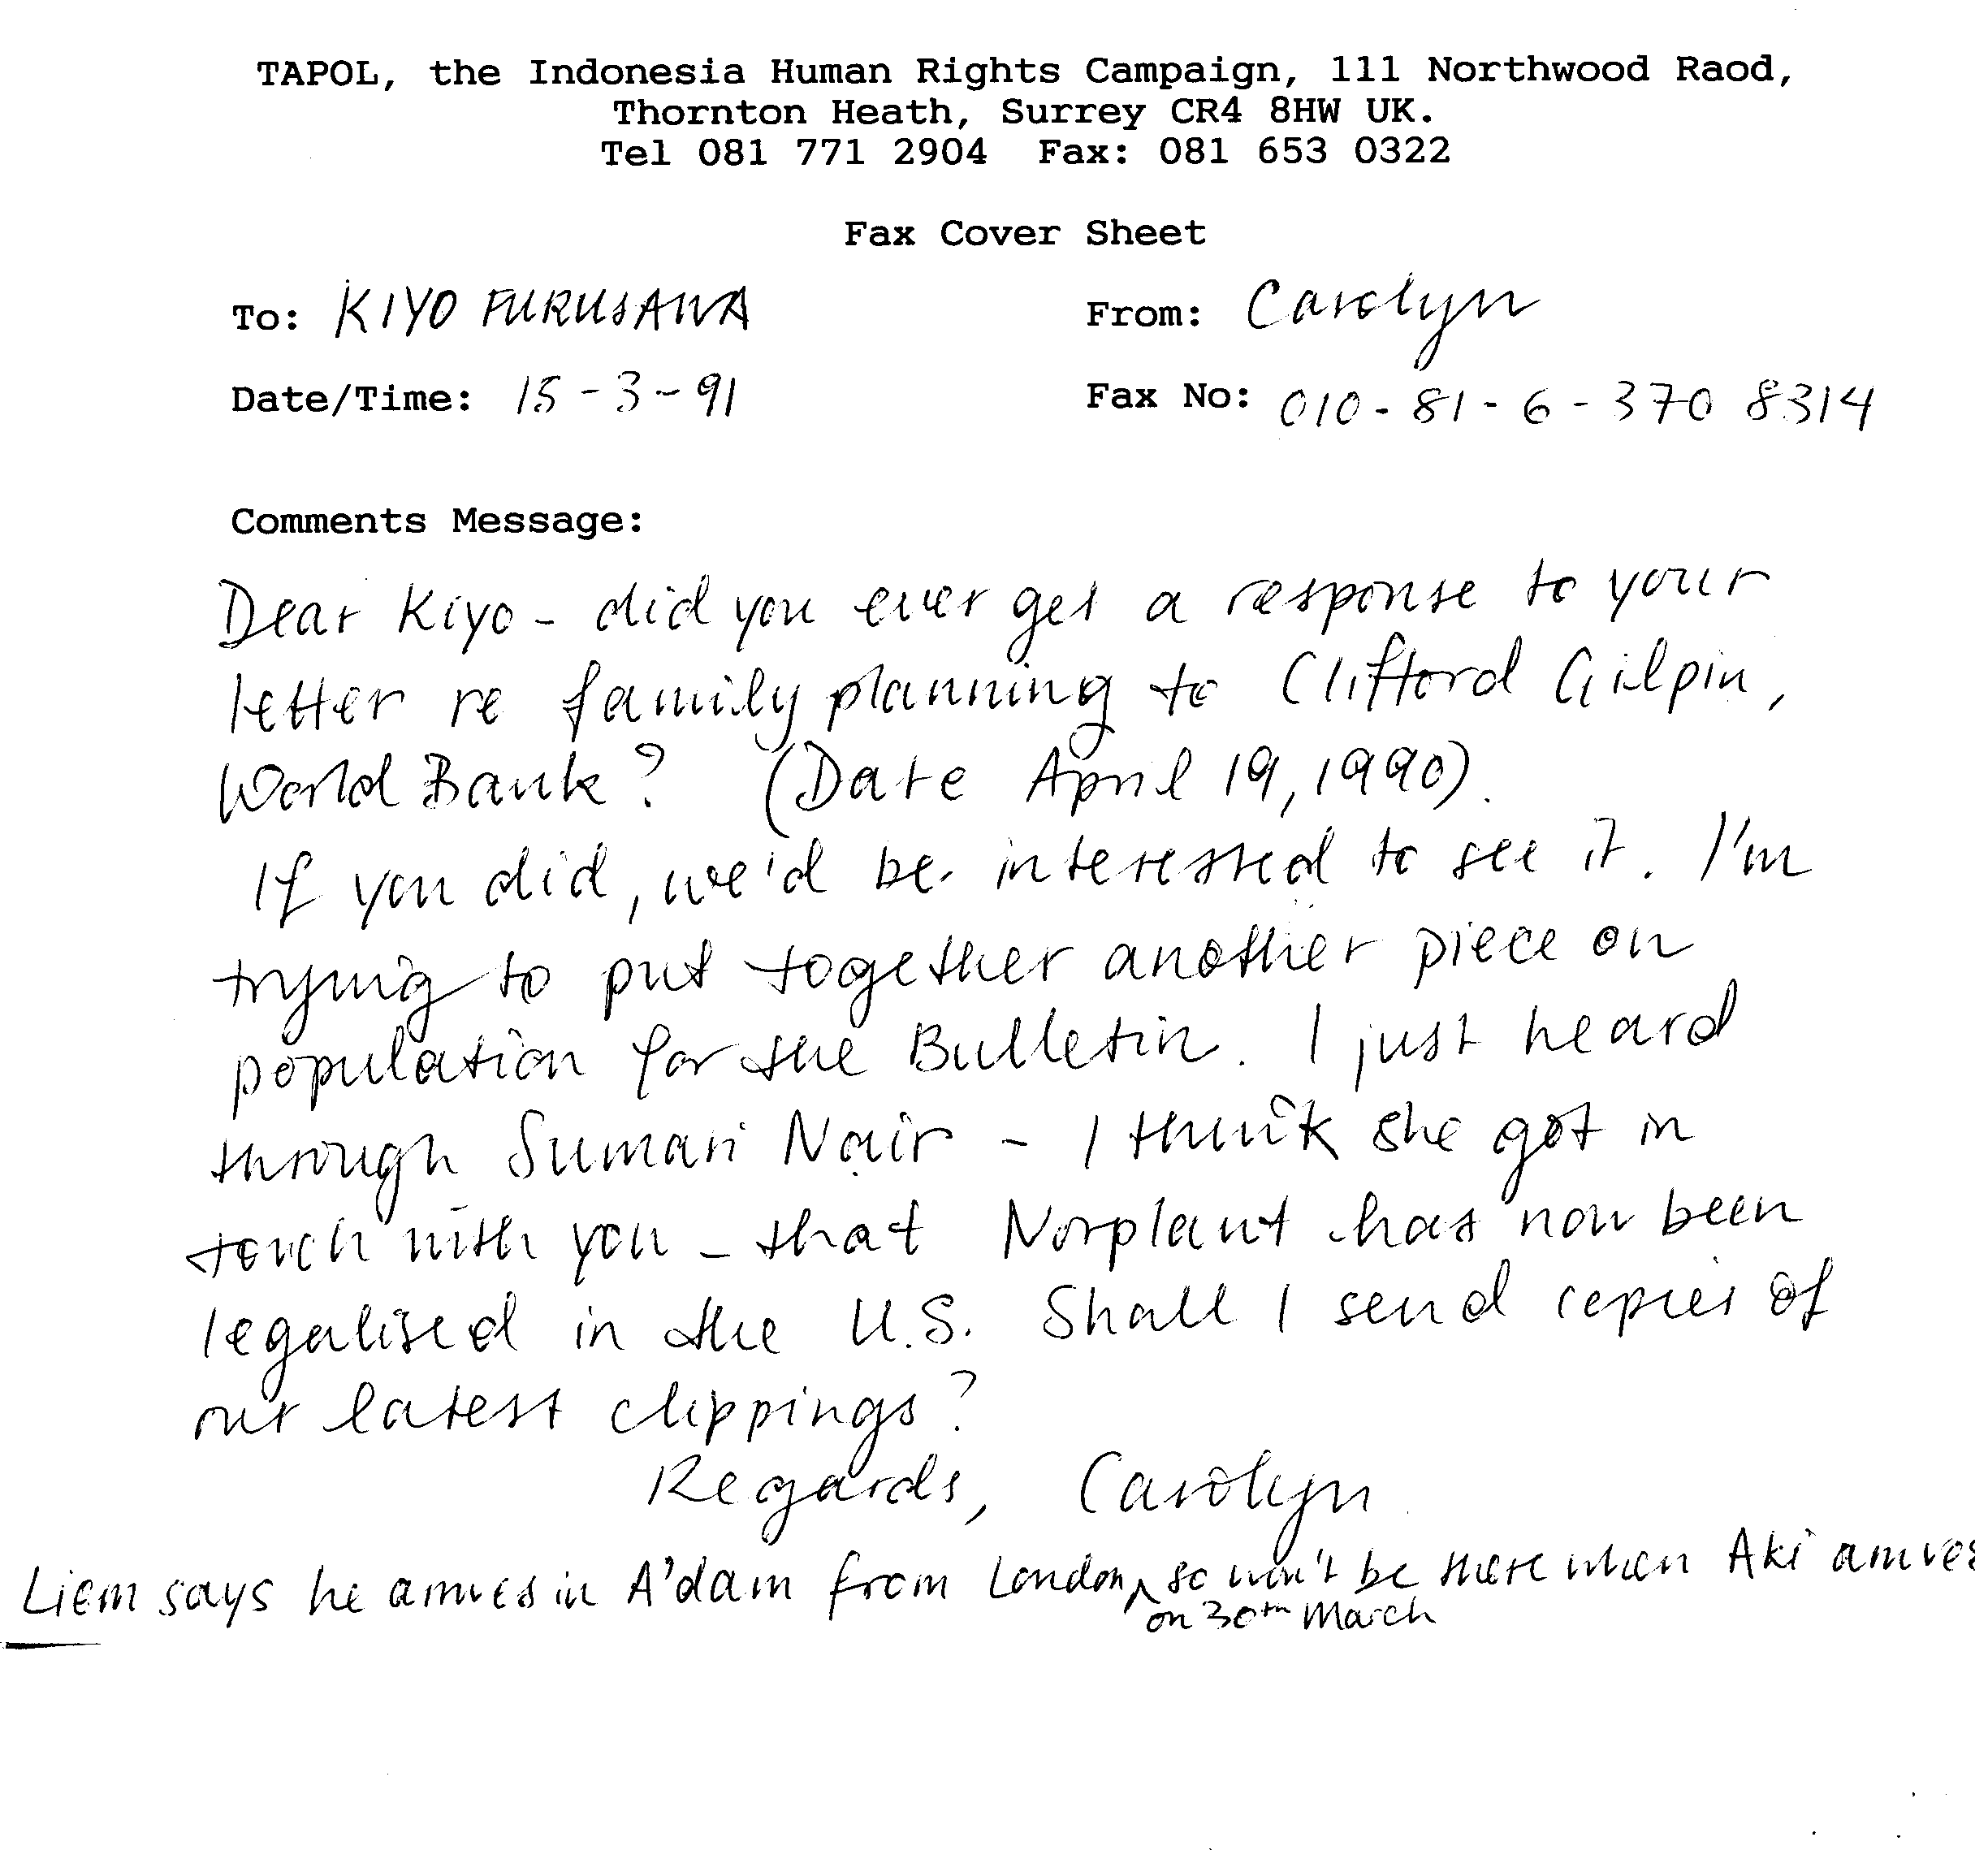 TAPOL, the Indonesia Human Rights Campaign, 111 Northwood Raod,
Thornton Heath, Surrey CR4 8HW UK.
Tel 081 771 2904 Fax: 081 653 0322
Fax Cover Sheet
To: KIYO FURUSAWA From: Carolyn
Date/Time: 15-3-91 Fax No: 010-81-6-370 8314
Comments Message:
Dear Kiyo - did you ever get a response to your
letter re family planning to Clifford Gilpin,
World Bank? (Date April 19, 1990).
If you did, we'd be interested to see it. I'm
trying to put together another piece on
population for the Bulletin. I just heard
through Sumari Nair - I think she got in
touch with you - that Norplant has now been
legalised in the U.S. Shall I send copies of
our latest clippings?
Regards, Carolyn
Liem says he arrives in A'dam from London, so won't be there when Aki arrives
on 30th March